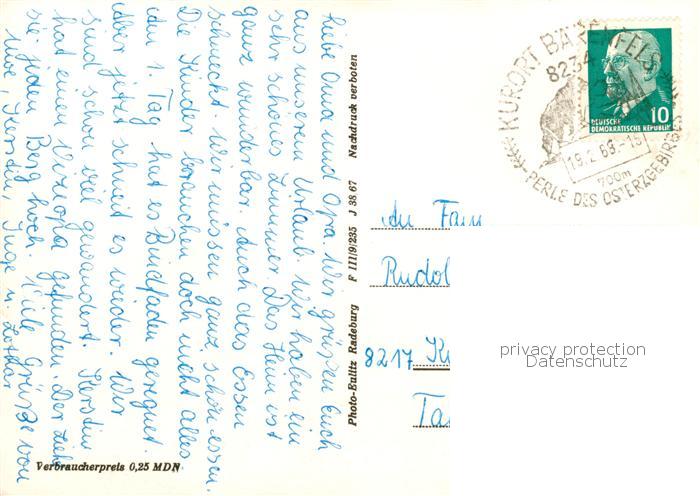 Liebe Oma und Opa. Wir grüssen Euch
aus unserem Urlaub. Wir haben ein
sehr schönes Zimmer. Das Heim ist
ganz wunderbar. Auch das Essen
schmeckt. Wir müssen ganz schön essen.
Die Kinder brauchen doch nicht alles.
Den 1. Tag hat es Bindfaden geregnet.
Aber jetzt schneit es wieder. Wir
sind schon viel gewandert. Kerstin
hat einen Uropa gefunden. Der zieht
sie jeden Berg hoch. Viele Grüsse von
Uwe, Kerstin, Inge u. Lothar
Verbraucherpreis 0,25 MDN
Photo-Eulitz Radeburg F III/9/235 J 38 67 Nachdruck verboten
KURORT BÄRENFELS
8234
19.2.68.-15
700m
PERLE DES OSTERZGEBIRGES
10
DEUTSCHE
DEMOKRATISCHE REPUBLIK
An Fam
Rudol
8217 K
Ta
privacy protection
Datenschutz